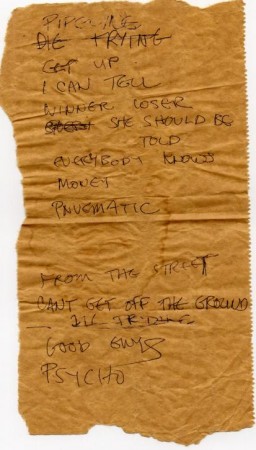 PIPELINE
DIE TRYING
GET UP
I CAN TELL
WINNER LOSER
SHE SHOULD BE
TOLD
EVERYBODY KNOWS
MONEY
PNUEMATIC
FROM THE STREET
CANT GET OFF THE GROUND
GOOD GUYS
PSYCHO